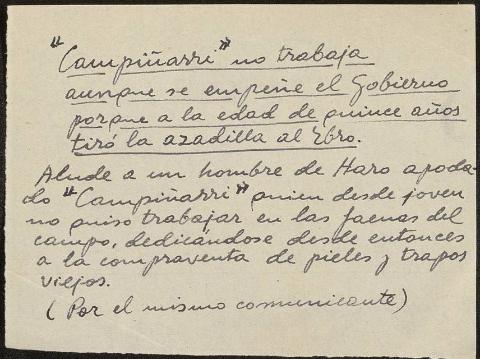 "Campiñarri" no trabaja
aunque se empeñe el Gobierno
porque a la edad de quince años
tiró la azadilla al Ebro.
Alude a un hombre de Haro apoda-
do "Campiñarri" quien desde joven
no quiso trabajar en las faenas del
campo, dedicándose desde entonces
a la compraventa de pieles y trapos
viejos.
(Por el mismo comunicante)